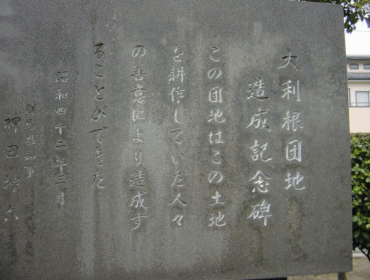 大利根団地
造成記念碑
この団地はこの土地
を耕作していた人々
の善意により造成す
ることができた
昭和四十二年三月